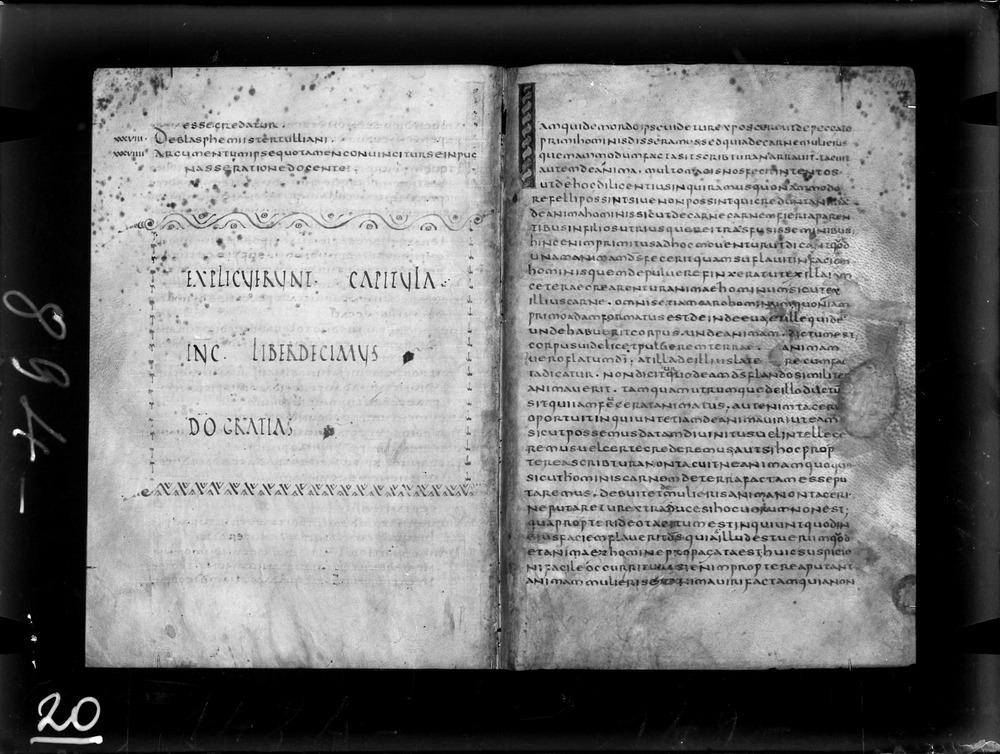 ESSECREDATUR.
XXXVIII. DEBLASPHEMIISTERTULLIANI.
XXXVIIII ARGUMENTUMIPSEQUOTAMENCONVINCITURSEINPUG
NASSERATIONEDOCENTE.
EXPLICUERUNT. CAPITULA.
INC. LIBERDECIMUS
DO GRATIAS
IAMQUIDEMORDOIPSEUIDETUREXPOSCEREUTDEPECCATO
PRIMIHOMINISDISSERAMUSSEDQUIADECARNEMULIERIS
QUEMADMODUMFACTASITSCRIBTURANARRAUIT. TACUIT
AUTEMDEANIMA. MULTOMAGISNOSFECITINTENTOS
UTDEHOCDILIGENTIUSINQUIRAMUSQUONAMMODO
REFELLIPOSSINTSIUENONPOSSINTQUICREDUNTANIMA
DEANIMAHOMINISSICUTDECARNECARNEMFIERIAPAREN
TIBUSINFILIOSUTRIUSQUEREITRASFUSISSEMINIBUS
HINCENIMPRIMITUSADHOCMOUENTURUTDICANTQOD
UNAMANIMAMDSFECERITQUAMSUFLAUITINFACIEM
HOMINISQUEMDEPULUEREFINXERATUTEXILLAIAM
CETERAECREARENTURANIMAEHOMINUMSICUTEX
ILLIUSCARNE. OMNISETIAMCAROHOMINUMQUONIAM
PRIMOADAMFORMATUSESTDEINDEEUAETILLEQUIDE
UNDEHABUERITCORPUS. UNDEANIMAM. DICTUMEST
CORPUSUIDELICETPULBERETERRAE. ANIMAM
UEROFLATUMDI; ATILLADEILLIUSLATERE CUMFAC
TADICATUR. NONDICITQUODEAMDSFLANDOSIMILITER
ANIMAUERIT. TAMQUAMUTRUMQUEDEILLODUCTU
SITQUIIAMFECERATANIMATUS. AUTENIMTACERI
OPORTUITINQUIUNTETIAMDEANIMAUIRIUTEAM
SICUTPOSSEMUSDATAMDIUINITUSUELINTELLEGE
REMUSUELCERTECREDEREMUSAUTSIHOCPROP
TEREASCRIBTURANONTACUITNEANIMAMQUOQUE
SICUTHOMINISCARNEMDETERRAFACTAMESSEPU
TAREMUS. DEBUITETDEMULIERISANIMANONTACERI
NEPUTARETUREXTRADUCESIHOCUERUMNONEST;
QUAPROPTERIDEOTACTUMESTINQUIUNTQUODIN
EIUSFACIEMFLAUERITDSQUIAILLUDESTUERUMQOD
ETANIMAEXHOMINEPROPAGATAESTHUICSUSPICIO
NIFACILEOCCURRITURSIENIMPROPTEREAPUTANT
ANIMAMMULIERISEXANIMAUIRIFACTAMQUIANON
20